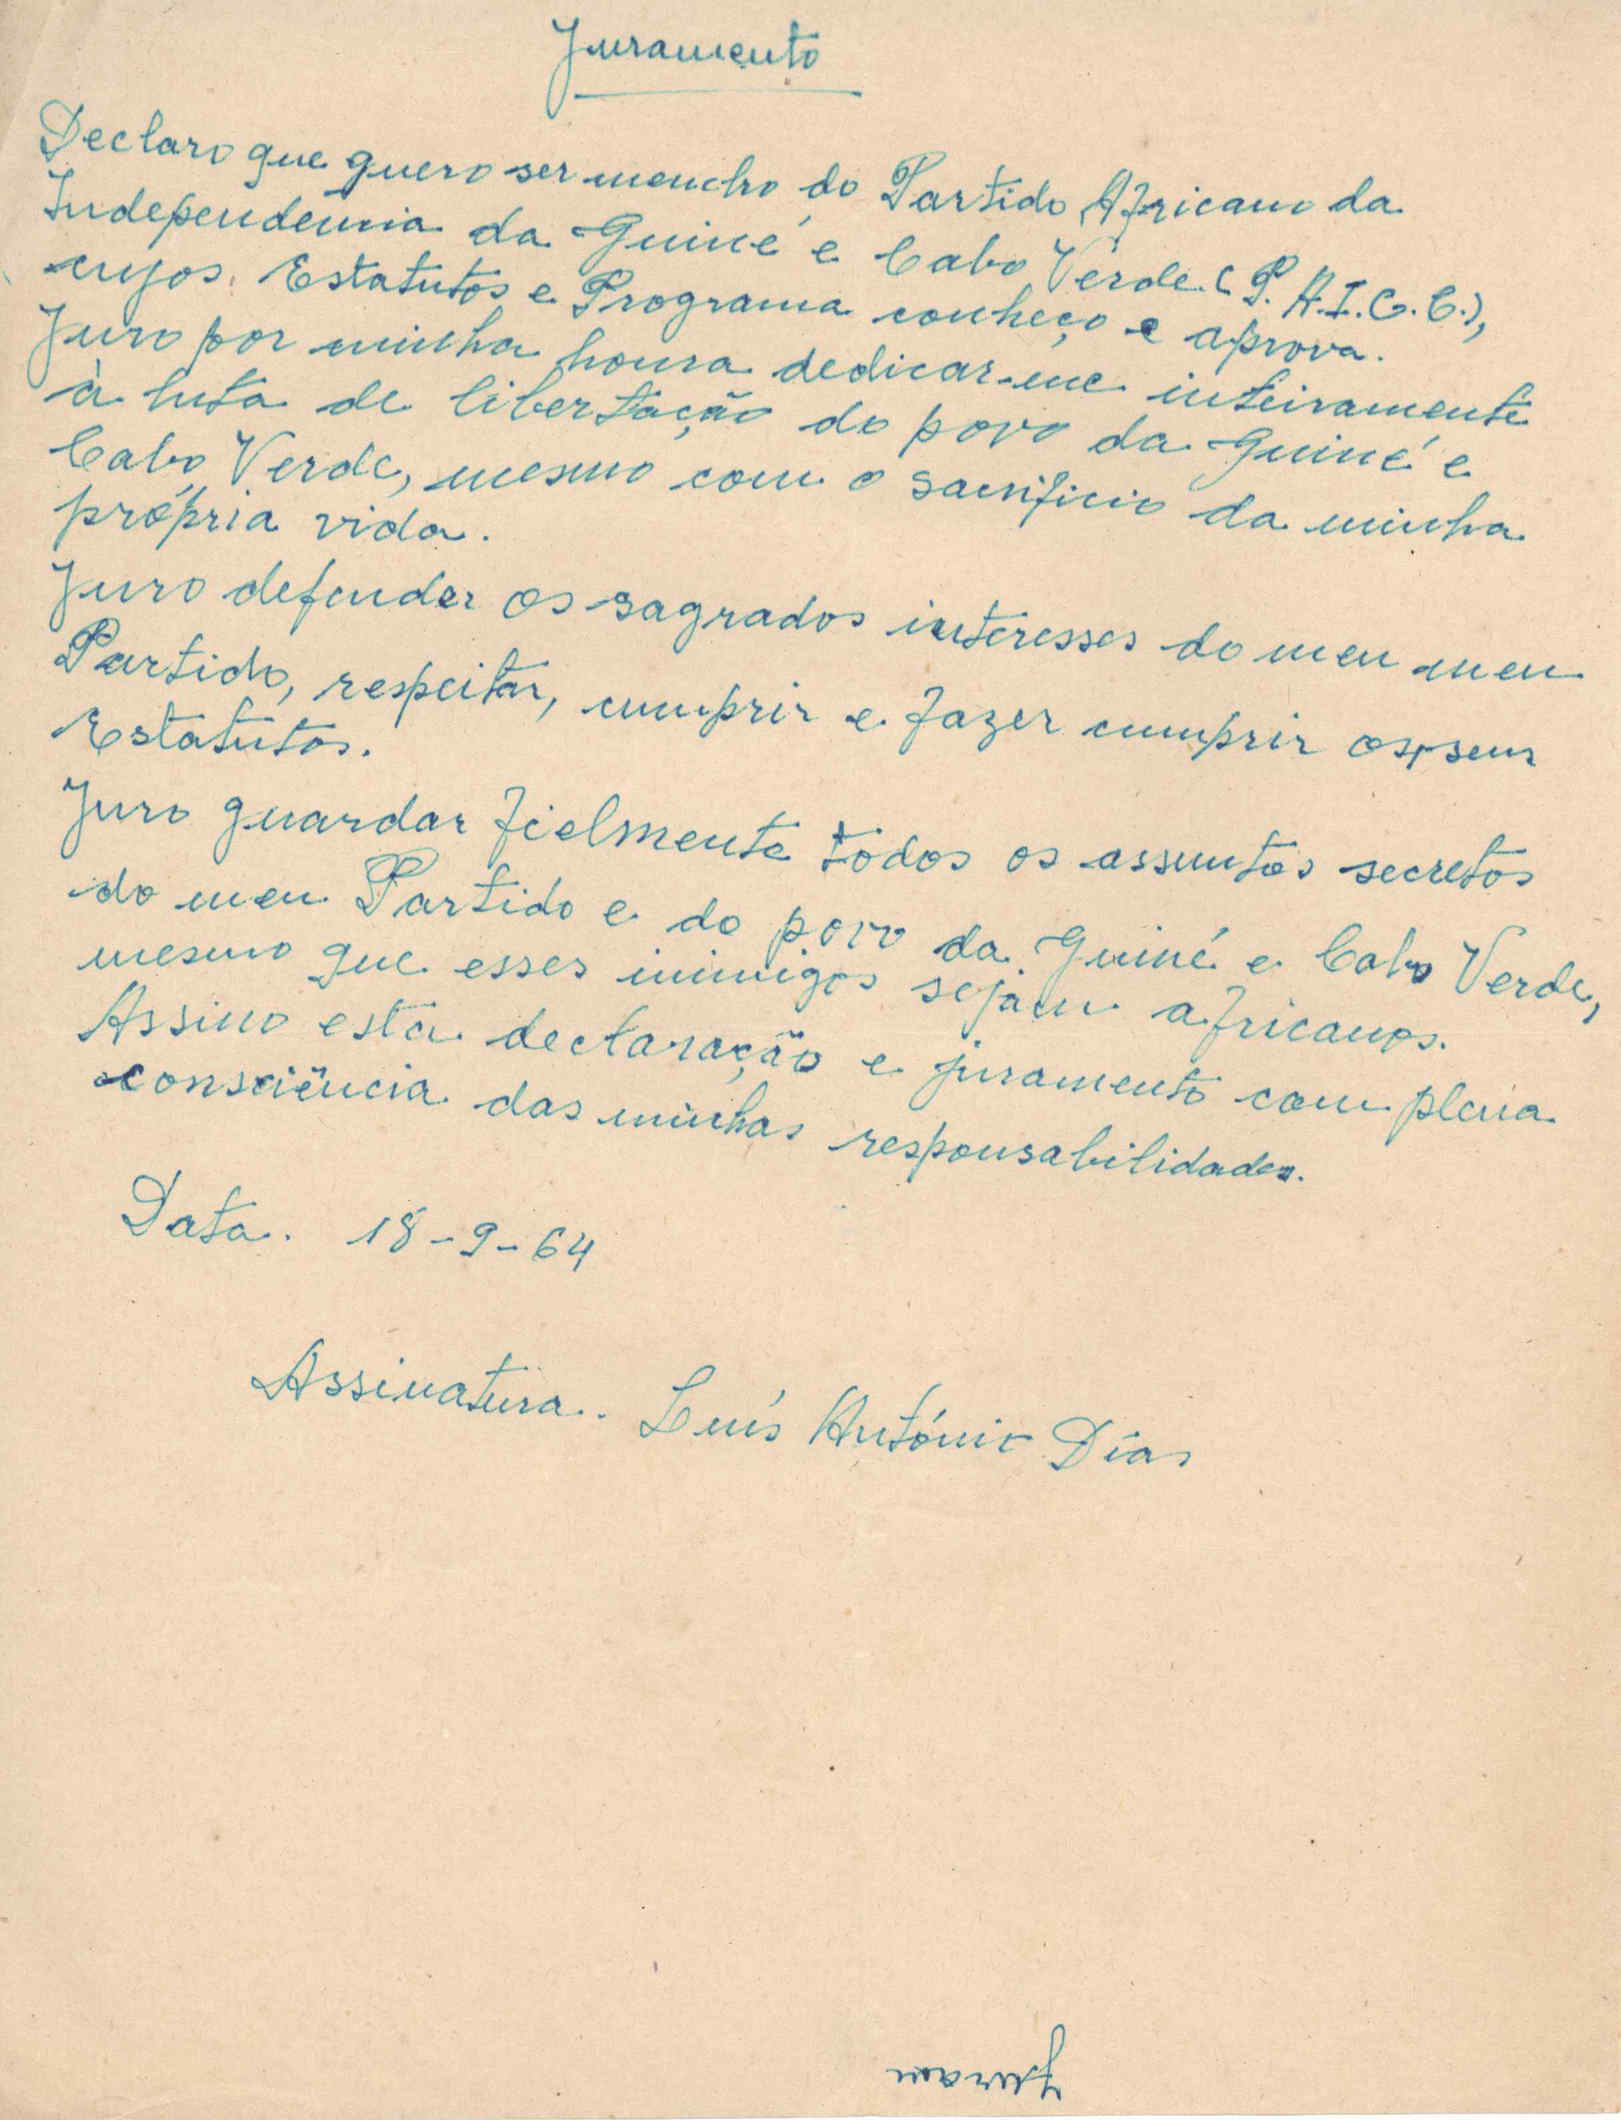 Juramento
Declaro que quero ser membro do Partido Africano da
Independencia da Guiné e Cabo Verde (P.A.I.G.C.),
cujos Estatutos e Programa conheço e aprova.
Juro por minha honra dedicar-me inteiramente
à luta de libertação do povo da Guiné e
Cabo Verde, mesmo com o sacrificio da minha
própria vida.
Juro defender os sagrados interesses do meu meu
Partido, respeitar, cumprir e fazer cumprir os seus
Estatutos.
Juro guardar fielmente todos os assuntos secretos
do meu Partido e do povo da Guiné e Cabo Verde,
mesmo que esses inimigos sejam africanos.
Assino esta declaração e juramento com plena
consciência das minhas responsabilidades.
Data. 18-9-64
Assinatura. Luís António Dias